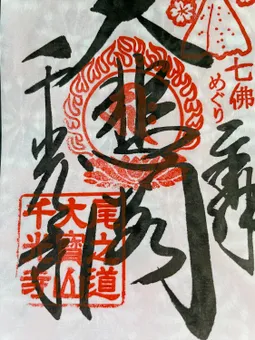 七佛
めぐり
奉拜
大悲閣
千光寺
尾之道
大寶山
千光寺